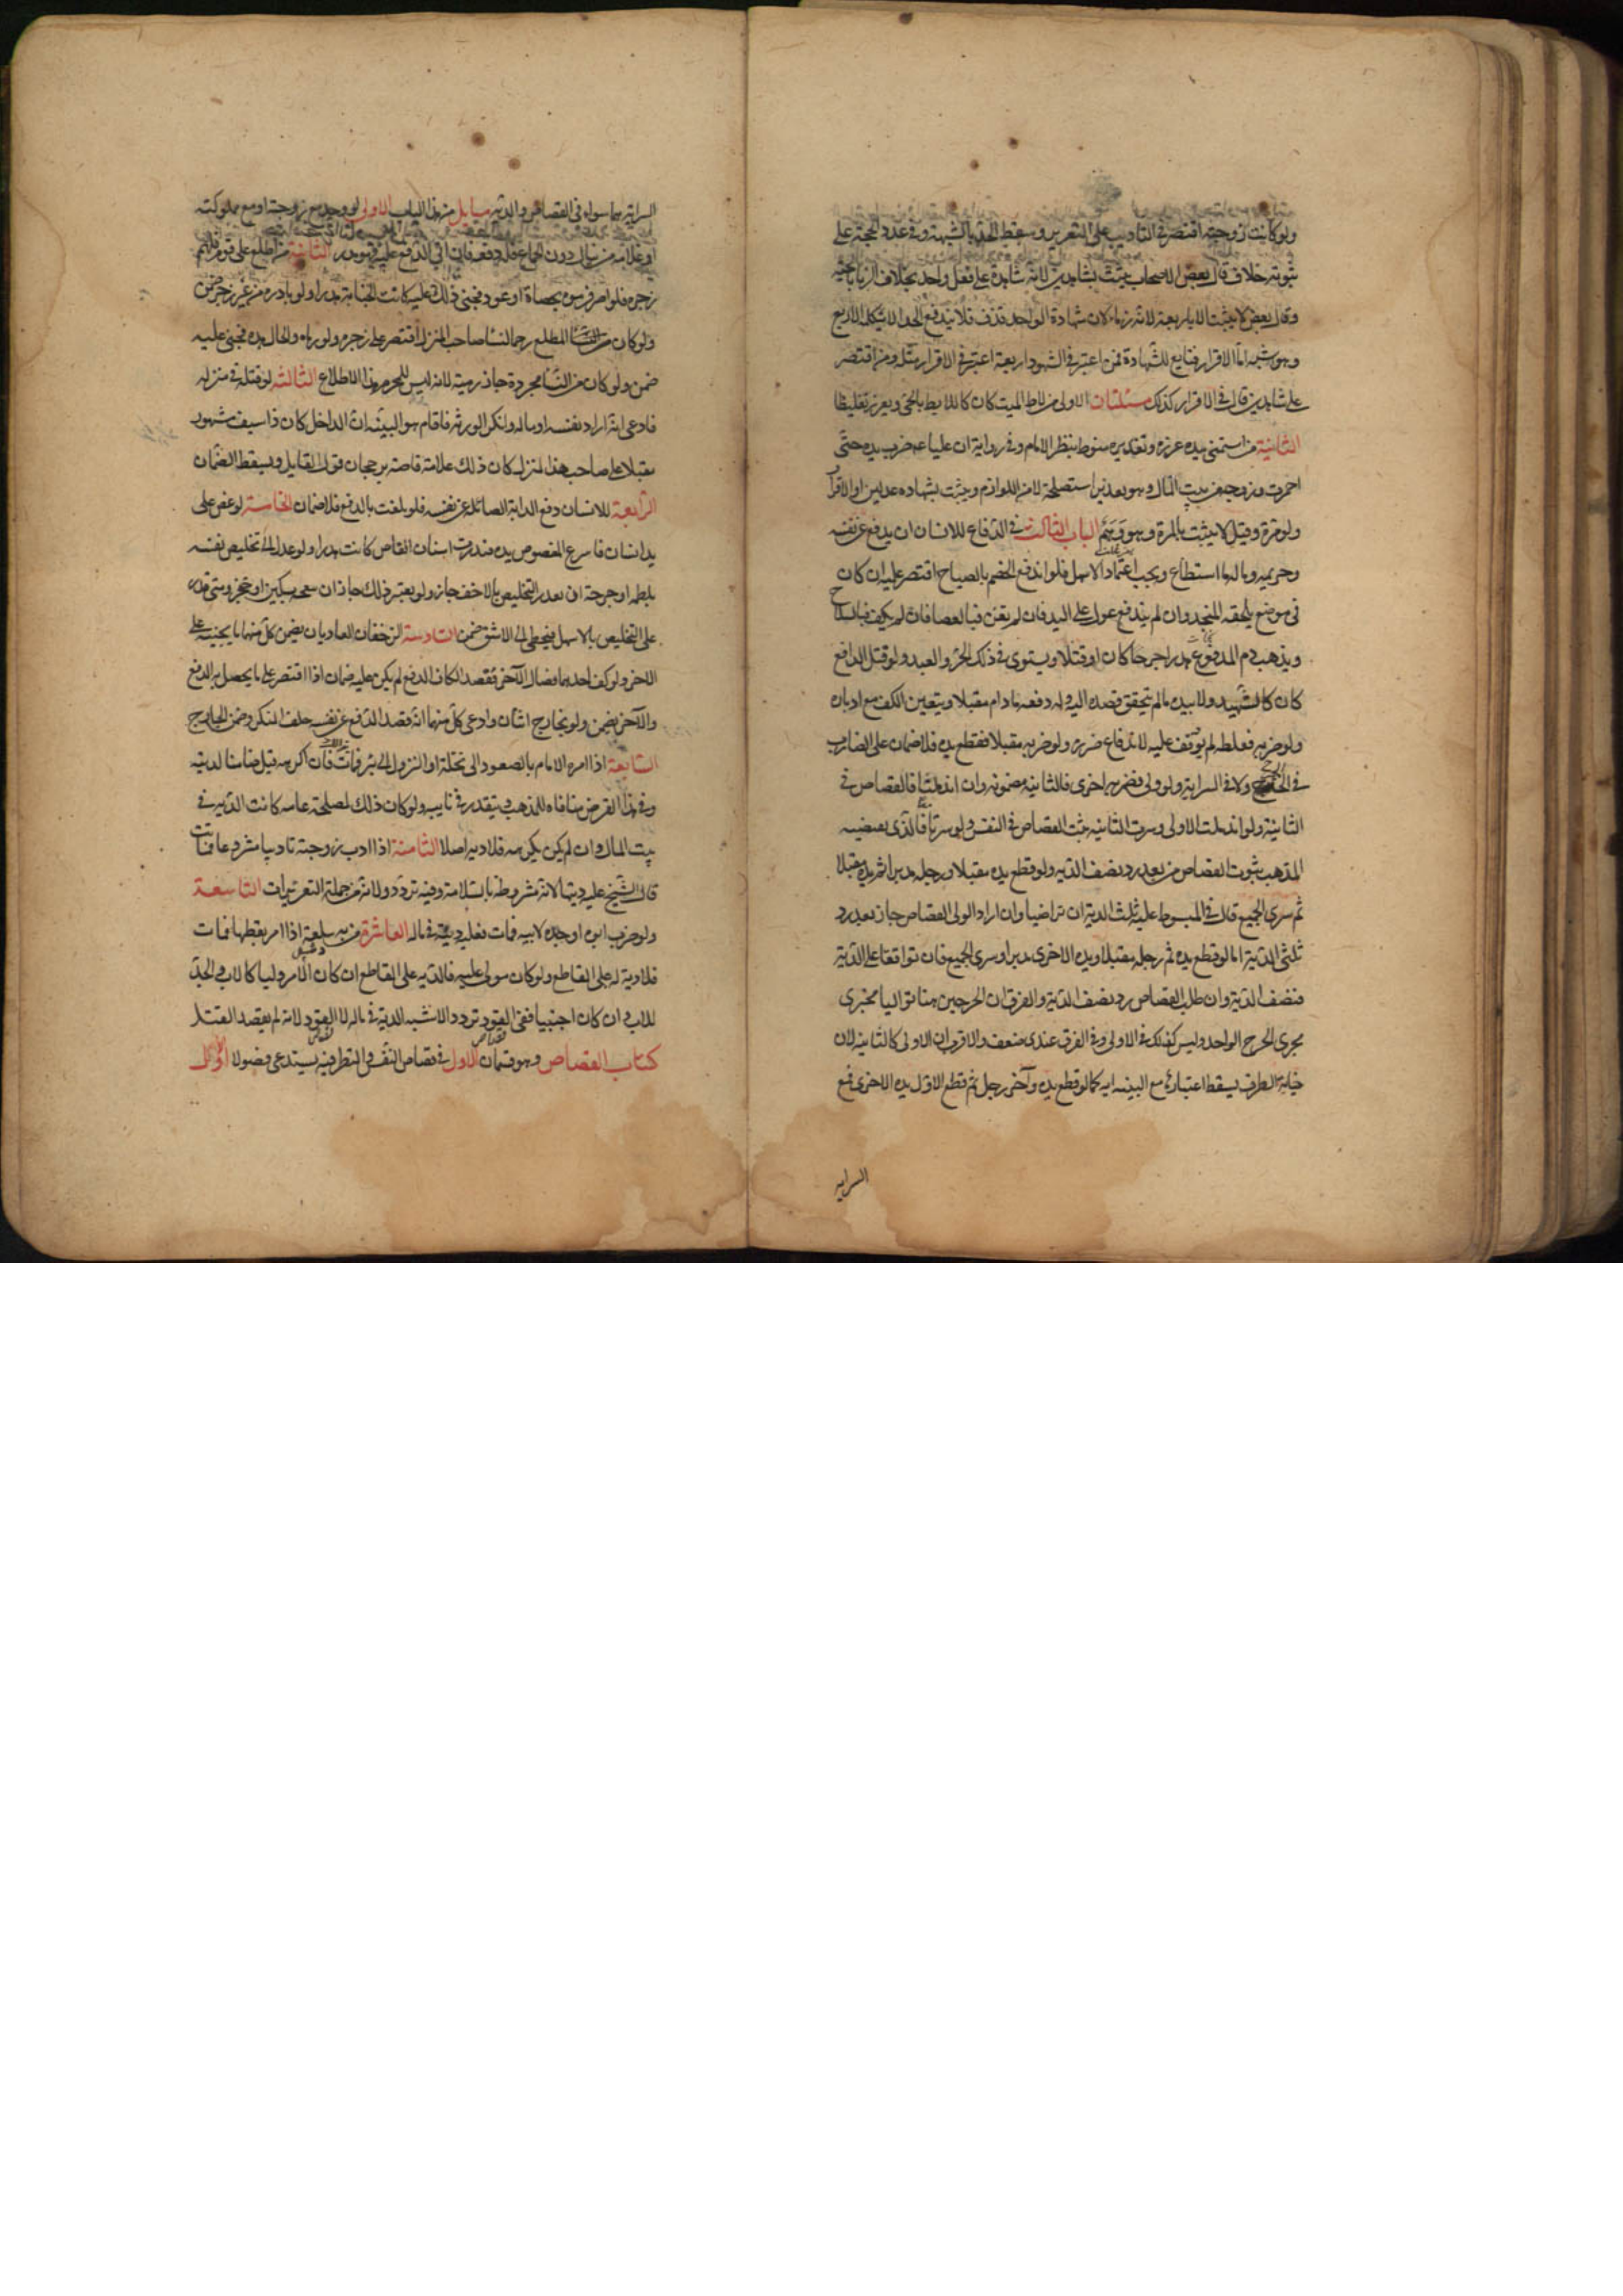 ولو كانت زوجته اقتصر في التاديب على التعزير وسقط الحد بالشبهة وفي عدد الحجة على
ثبوته خلاف قال بعض الاصحاب يثبت بشاهدين لانه شهادة على فعل واحد بخلاف الزنا بالحية
وقال بعض لا يثبت الا باربعة لانه زنا ولان شهادة الواحد قذف فلا يندفع الحد الا بتكملة الاربع
وهو اشبه اما الاقرار فتابع للشهادة فمن اعتبر في الشهود اربعة اعتبر في الاقرار مثله ومن اقتصر
على شاهدين قال في الاقرار كذلك مسئلتان الاولى من لاط بالميت كان كاللايط بالحي ويعزر تغليظا
الثانية من استمنى بيده عزر وتقديره منوط بنظر الامام وفي رواية ان عليا ع ضرب يده حتى
احمرت وزوجه من بيت المال وهو تدبير استصلحه لا من اللوازم ويثبت بشهادة عدلين او الاقرار
ولو مرة وقيل لا يثبت بالمرة وهو وهم الباب الثالث في الدفاع للانسان ان يدفع عن نفسه
وحريمه وماله ما استطاع ويجب اعتماد الاسهل فلو اندفع الخصم بالصياح اقتصر عليه ان كان
في موضع يلحقه المنجد وان لم يندفع عول على اليد فان لم تغن فبالعصا فان لم يكف فبالسلاح
ويذهب دم المدفوع هدرا جرحا كان او قتلا ويستوي في ذلك الحر والعبد ولو قتل الدافع
كان كالشهيد ولا يبدء ما لم يتحقق قصده اليه وله دفعه ما دام مقبلا ويتعين الكف مع ادباره
ولو ضربه فعطله لم يوقف عليه لاندفاع ضرره ولو ضربه مقبلا فقطع يده فلا ضمان على الضارب
في الجرح ولا في السراية ولو ولى فضربه اخرى فالثانية مضمونة وان اندملتا فالقصاص في
الثانية ولو اندملت الاولى وسرت الثانية ثبت القصاص في النفس ولو سرتا فالذي يقتضيه
المذهب ثبوت القصاص من بعد رد نصف الدية ولو قطع يده مقبلا ورجله مدبرا ثم يده مقبلا
ثم سرى الجميع قال في المبسوط عليه ثلث الدية ان تراضيا وان اراد الولي القصاص جاز بعد رد
ثلثي الدية اما لو قطع يده ثم رجله مقبلا ويده الاخرى مدبرا وسرى الجميع فان توافقا على الدية
فنصف الدية وان طلب القصاص رد نصف الدية والفرق ان الجرحين هنا تواليا فجرى
مجرى الجرح الواحد وليس كذلك في الاولى وفي الفرق عندي ضعف والاقرب ان الاولى كالثانية لان
جناية الطرف يسقط اعتبارها مع السراية كما لو قطع يده وآخر رجله ثم قطع الاول يده الاخرى فمع
السراية
السراية هما سواء في القصاص والدية مسايل من هذا الباب الاولى لو وجد مع زوجته او مع مملوكته
او غلامه من ينال دون الجماع فله دفعه فان اتى الدفع عليه فهو هدر الثانية من اطلع على قوم فلهم
زجره فلو اصر فرموه بحصاة او عود فجنى ذلك عليه كانت الجناية هدرا ولو بادره من غير زجر ضمن
ولو كان المطلع رحما لنساء صاحب المنزل اقتصر على زجره ولو رماه والحال هذه فجنى عليه
ضمن ولو كان من النساء مجردة جاز رميه لانه ليس للمحرم هذا الاطلاع الثالثة لو قتله في منزله
فادعى انه اراد نفسه او ماله وانكر الورثة فاقام هو البينة ان الداخل كان ذا سيف مشهور
مقبلا على صاحب هذا المنزل كان ذلك علامة قاضية برجحان قول القاتل ويسقط الضمان
الرابعة للانسان دفع الدابة الصائلة عن نفسه فلو تلفت بالدفع فلا ضمان الخامسة لو عض على
يد انسان فانتزع المعضوض يده فندرت اسنان العاض كانت هدرا ولو عدل الى تخليص نفسه
بلطمه او جرحه ان تعذر التخليص بالاخف جاز ولو تعذر ذلك جاز ان يبعجه بسكين او خنجر ومتى قدر
على التخليص بالاسهل فتخطى الى الاشق ضمن السادسة الزحفان العاديان يضمن كل منهما ما يجنيه على
الاخر ولو كف احدهما فصال الآخر فقصد الكاف الدفع لم يكن عليه ضمان اذا اقتصر على ما يحصل به الدفع
والآخر يضمن ولو تجارح اثنان وادعى كل منهما انه قصد الدفع عن نفسه حلف المنكر وضمن الجارح
السابعة اذا امره الامام بالصعود الى نخلة او النزول الى بئر فمات فان اكرهه قيل ضامنا لديته
وفي هذا الفرض منافاة للمذهب ويتقدر في نايبه ولو كان ذلك لمصلحة عامة كانت الدية في
بيت المال وان لم يكن يكرهه فلا دية اصلا الثامنة اذا ادب زوجته تاديبا مشروعا فماتت
قال الشيخ عليه ديتها لانه مشروط بالسلامة وفيه تردد ولانه من جملة التعزيرات التاسعة
ولو ضرب ابوه او جده لابيه فمات فعليه ديته في ماله العاشرة من به سلعة اذا امر بقطعها فمات
فلا دية له على القاطع ولو كان مولى عليه فالدية على القاطع ان كان الامر وليا كالاب والجد
للاب وان كان اجنبيا ففي القود تردد الاشبه الدية في ماله لا القود لانه لم يقصد القتل
كتاب القصاص وهو قسمان الاول في قصاص النفس والنظر فيه يستدعي فصولا الاول